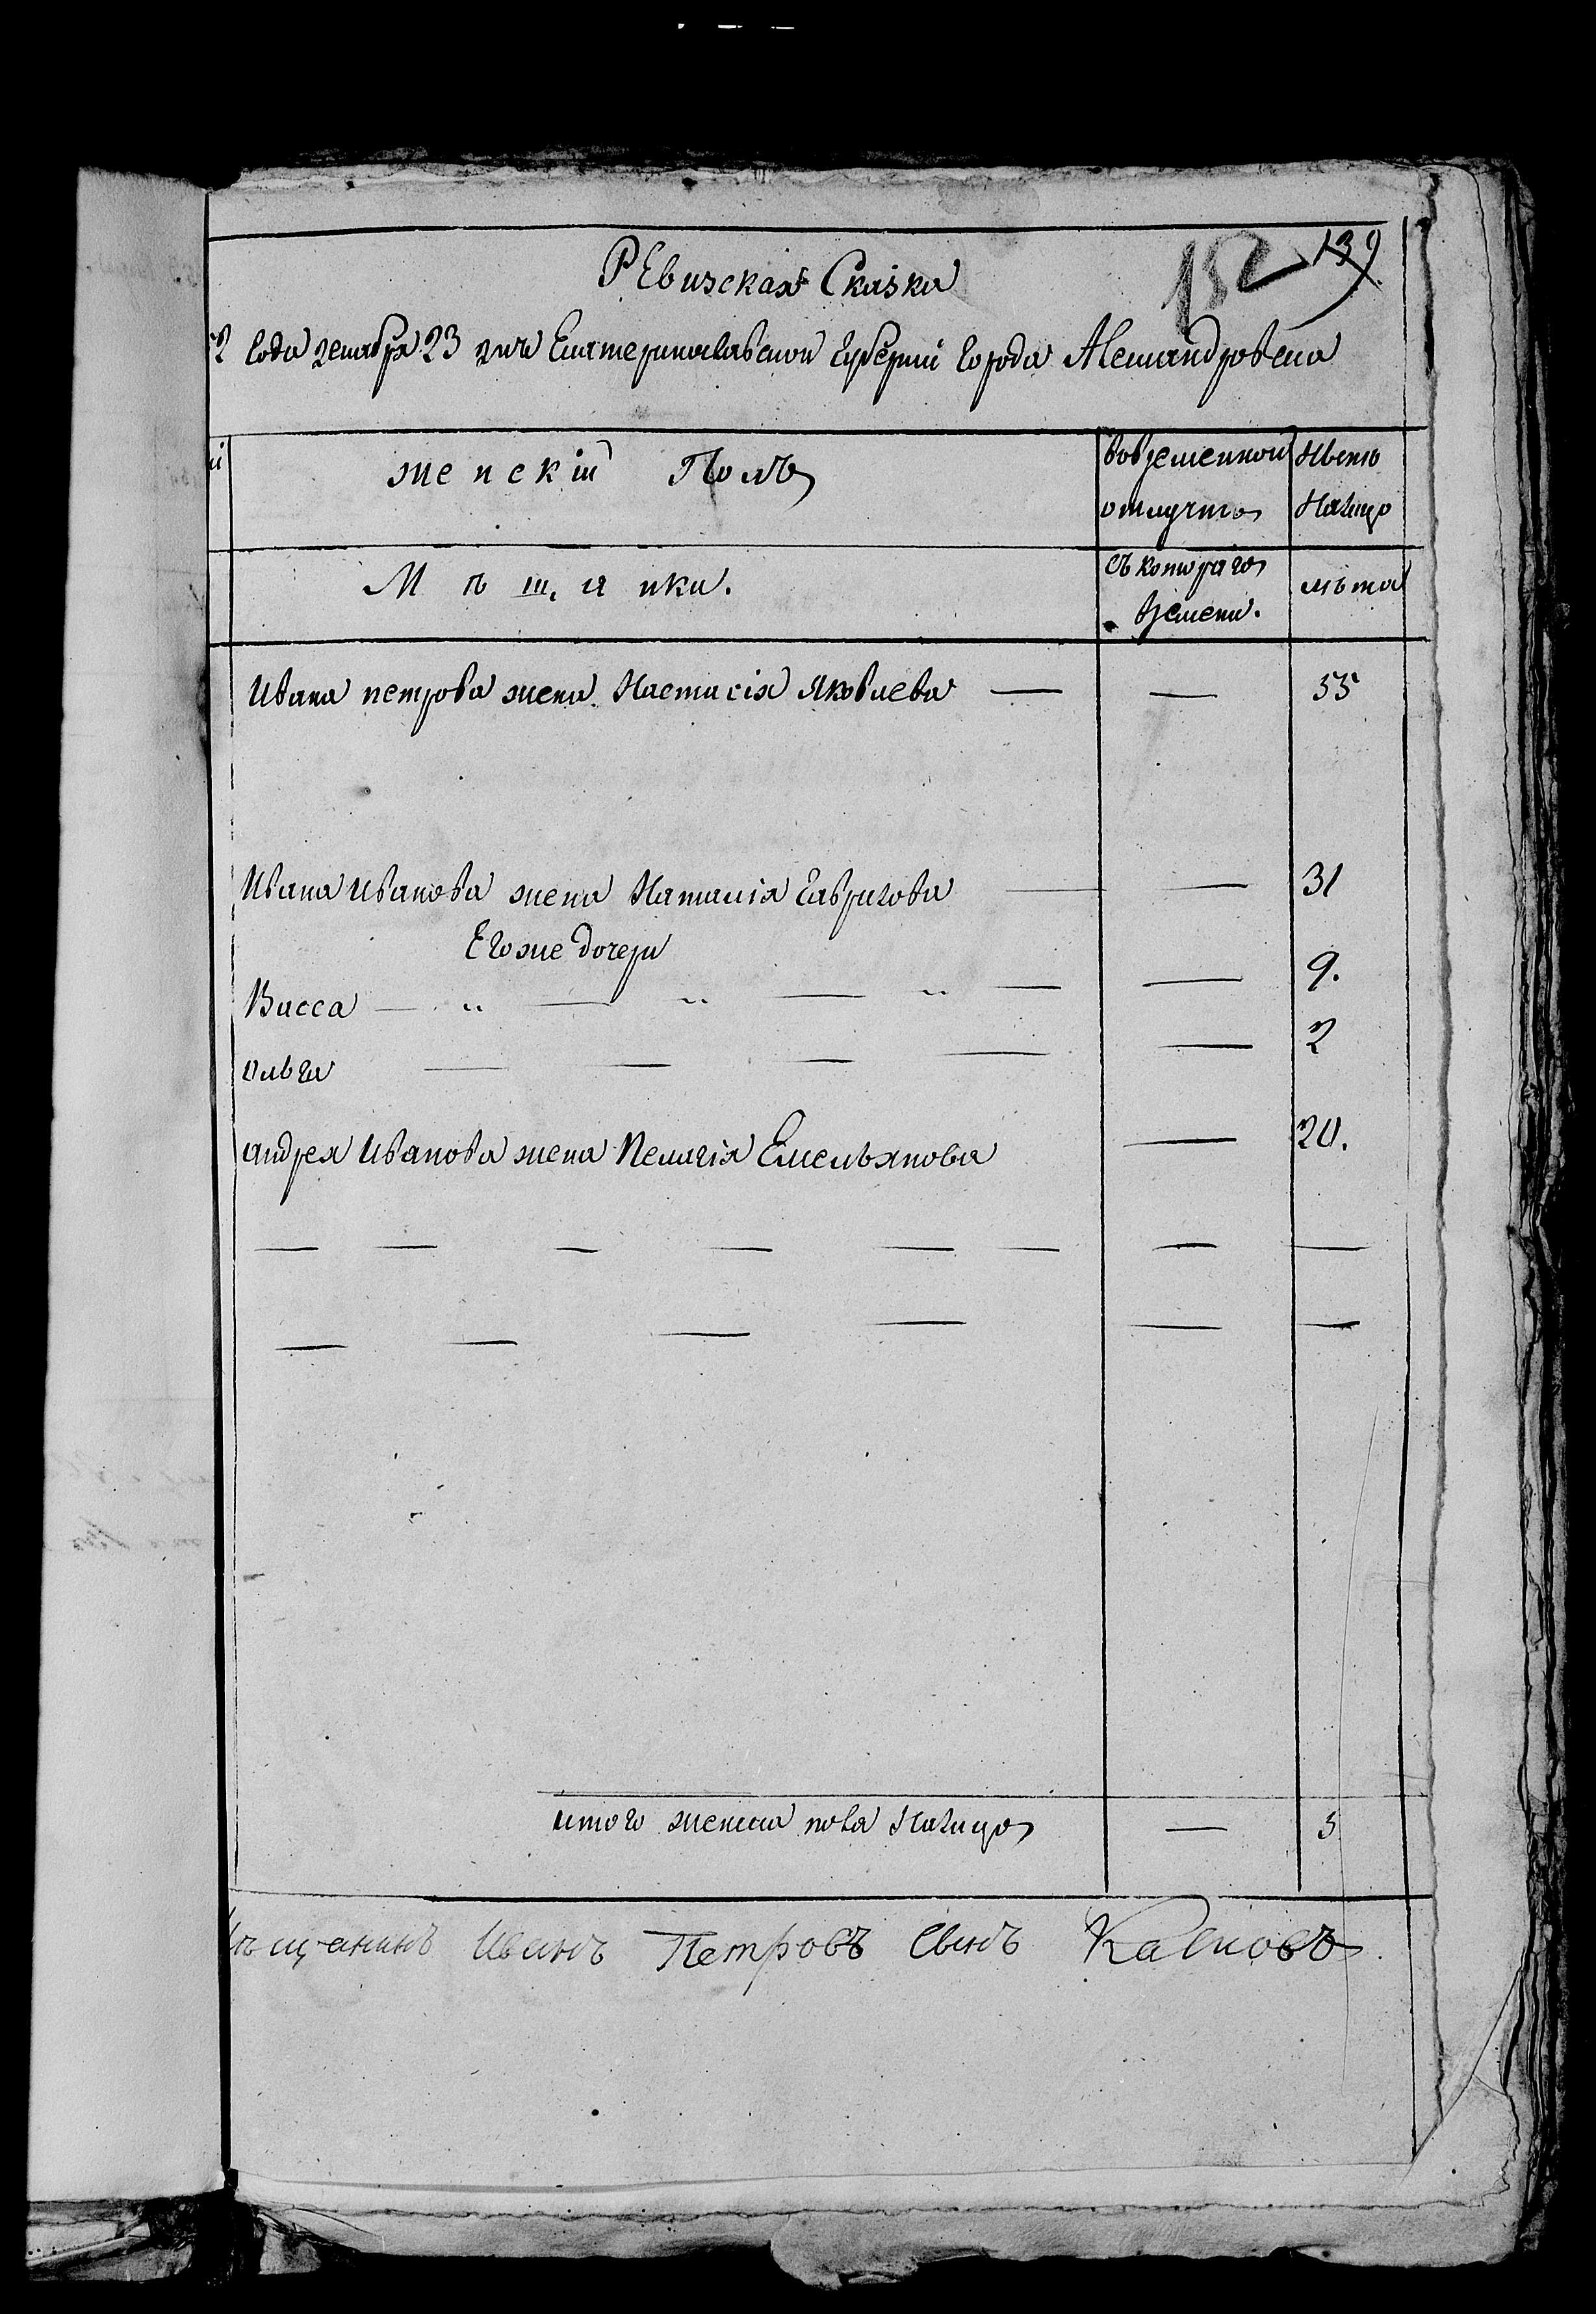 152 139
РЕвизская Сказка
года декабря 23 дня Екатеринославской губернii города Александровска
женскiй Полъ
вовременной
отлучке
Ныне
Налицо
Мѣщанки.
съкотораго
времени.
лѣта
Ивана петрова жена Настасiя Яковлева — — 55
Ивана иванова жена Наталiя Гаврилова — — 31
Егоже дочери
Васса — „ — „ — „ — — 9.
олга — — — — — 2
андрея иванова жена Пелагiя Емельянова — 20.
— — — — — — — —
— — — — — —
итого женска пола Налицо — 5
мѣщанинъ Иванъ Петровъ Сынъ